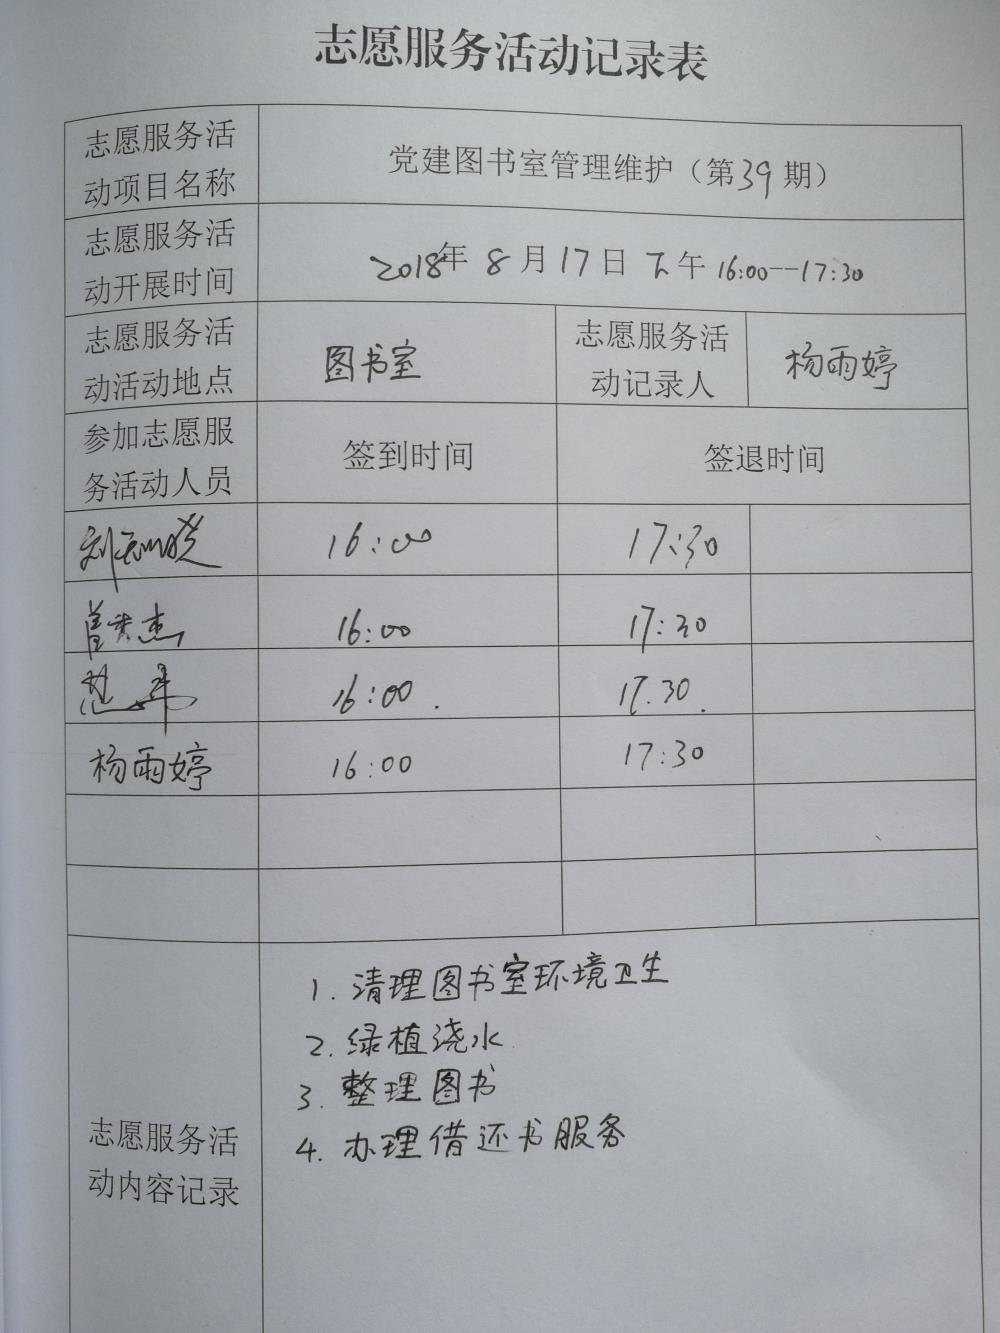 志愿服务活动记录表
志愿服务活
动项目名称
党建图书室管理维护（第39期）
志愿服务活
动开展时间
2018年 8 月 17 日 下午 16:00--17:30
志愿服务活
动活动地点
图书室
志愿服务活
动记录人
杨雨婷
参加志愿服
务活动人员
签到时间
签退时间
16:00
17:30
16:00
17:30
16:00.
17.30.
杨雨婷
16:00
17:30
志愿服务活
动内容记录
1. 清理图书室环境卫生
2. 绿植浇水
3. 整理图书
4. 办理借还书服务